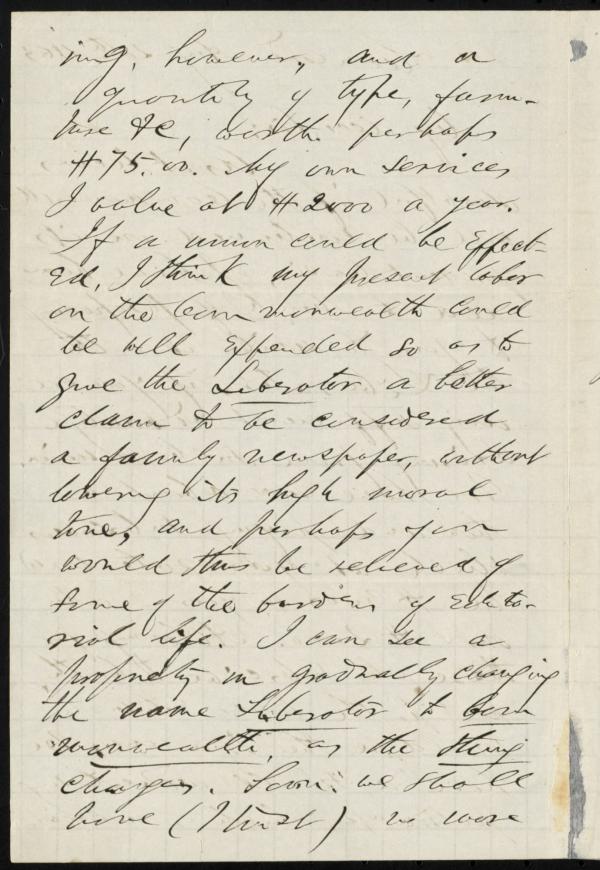 ing, however, and a
quantity of type, furni-
ture &c, worth perhaps
$75.00. My own services
I value at $2000 a year.
If a union could be effect-
ed, I think my present labor
on the Commonwealth could
be well expended so as to
give the Liberator a better
claim to be considered
a family newspaper, without
lowering its high moral
tone, and perhaps you
would thus be relieved of
some of the burdens of edito-
rial life. I can see a
propriety in gradually changing
the name Liberator to Com
monwealth, as the thing
changes. Soon we shall
have (I trust) no more